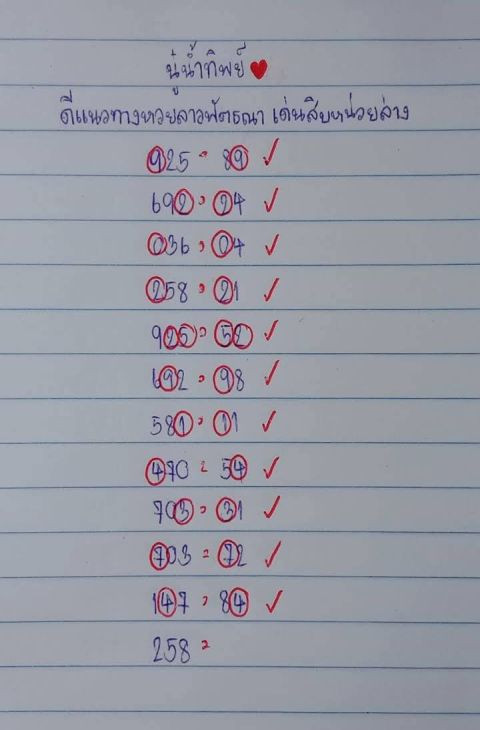 นู๋น้ำทิพย์
ดีแนวทางหวยลาวพัฒณา เด่นสิบหน่วยล่าง
925 = 89 ✓
692 = 24 ✓
036 = 04 ✓
258 = 21 ✓
925 = 52 ✓
692 = 98 ✓
581 = 11 ✓
470 = 54 ✓
703 = 31 ✓
703 = 72 ✓
147 = 84 ✓
258 =